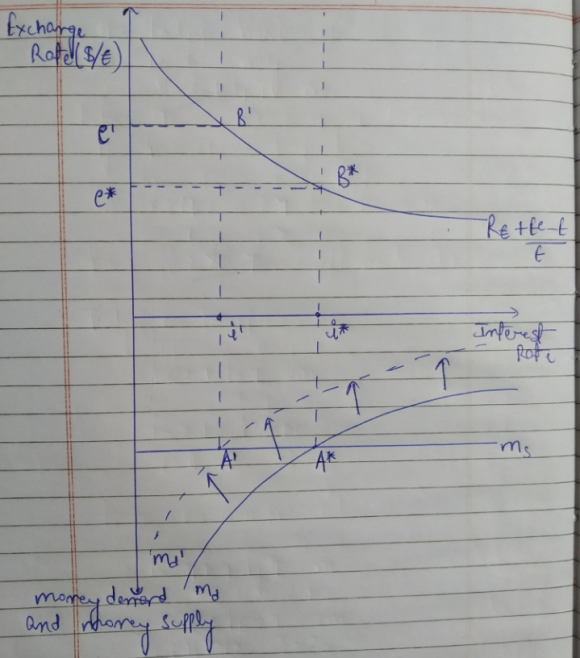 Exchange
Rate ($/€)
e'
B'
e*
B*
R€ + Ee - E
E
i'
i*
Interest
Rate
A'
A*
ms
md'
md
money demand
and money supply